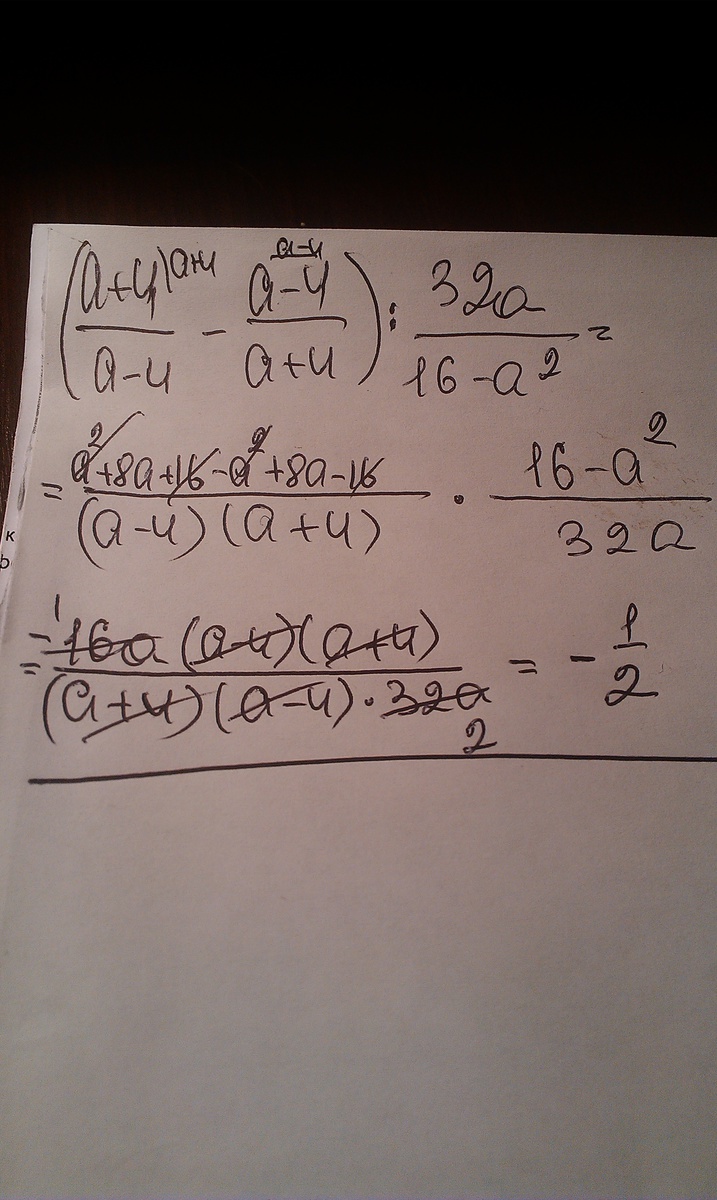 ((a+4)/(a-4) ^(a+4) - (a-4)/(a+4) ^(a-4)) : 32a/(16-a²) =
= (a²+8a+16-a²+8a-16)/((a-4)(a+4)) · (16-a²)/(32a)
= -16a(a-4)(a+4)/((a+4)(a-4)·32a) = -1/2
к